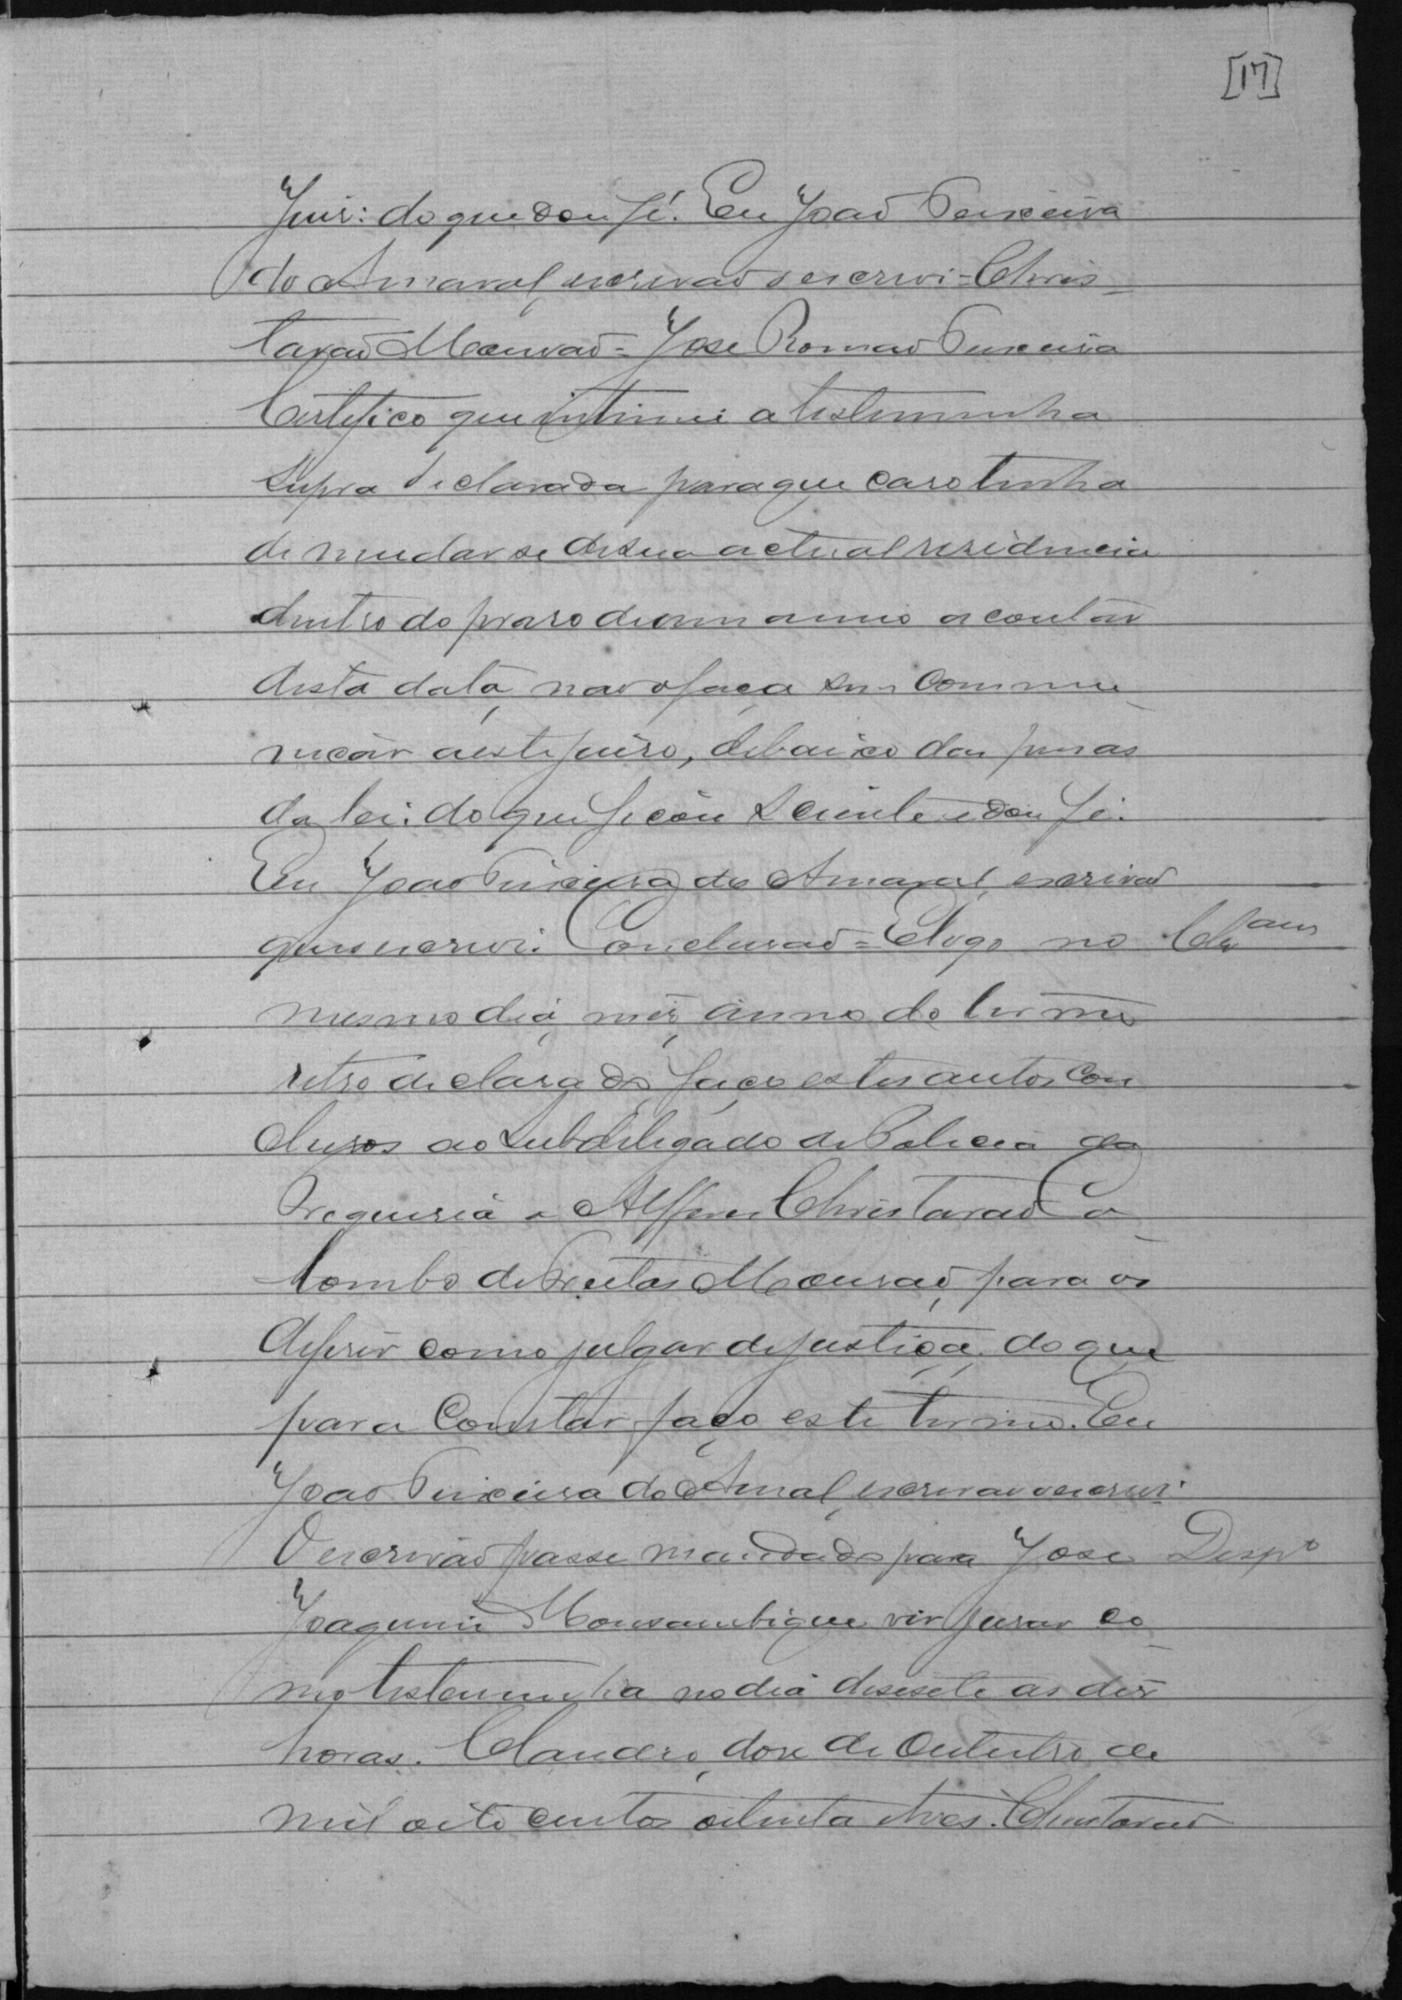 [17]
Juis: do que dou fé. Eu João Teixeira
do Amaral, escrivão o escrevi = Chris-
tavão Mourão = José Romão Teixeira
Certifico que intimei a testemunha
supra declarada para que caso tenha
de mudar se de sua actual residencia
dentro do praso de um anno a contar
desta data, não o faça sem commu-
nicar a este juiso, debaixo das penas
da lei: do que ficou sciente e dou fé.
Eu João Teixeira do Amaral, escrivão
que escrevi. Conclusão = E logo no
mesmo dia, mês, anno do termo
retro declarado, faço estes autos con
clusos ao Subdelegado de Policia da
Freguesia o Alferes Christavão Co-
lombo de Freitas Mourão, para os
deferir como julgar de justiça, do que
para constar faço este termo. Eu
João Teixeira do Amal, escrivão o escrevi.
O escrivão passe mandado para José Despº
Joaquim Monsambique vir jurar co-
mo testemunha no dia desesete as dés
horas. Claudio, dose de Outubro de
mil oito centos oitenta e tres. Christavão